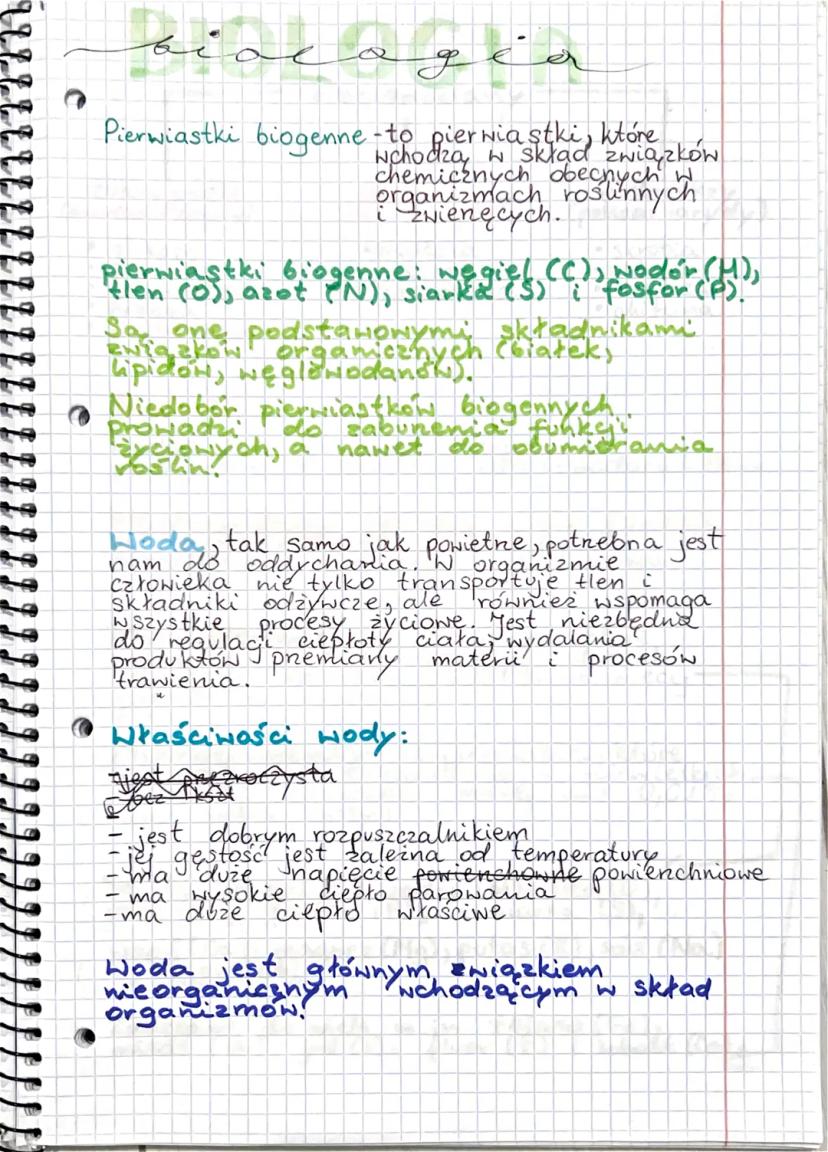 BIOLOGIA
biologia
Pierwiastki biogenne - to pierwiastki, które
wchodzą w skład związków
chemicznych obecnych w
organizmach roślinnych
i zwierzęcych.
pierwiastki biogenne: węgiel (C), wodór (H),
tlen (O), azot (N), siarka (S) i fosfor (P).
Są one podstawowymi składnikami
związków organicznych (białek,
lipidów, węglowodanów).
Niedobór pierwiastków biogennych
prowadzi do zaburzenia funkcji
życiowych, a nawet do obumierania
roślin!
Woda, tak samo jak powietrze, potrzebna jest
nam do oddychania. W organizmie
człowieka nie tylko transportuje tlen i
składniki odżywcze, ale również wspomaga
wszystkie procesy życiowe. Jest niezbędna
do regulacji ciepłoty ciała, wydalania
produktów przemiany materii i procesów
trawienia.
Właściwości wody:
- jest przezroczysta
- bez
- jest dobrym rozpuszczalnikiem
- jej gęstość jest zależna od temperatury
- ma duże napięcie powierzchowne powierzchniowe
- ma wysokie ciepło parowania
- ma duże ciepło właściwe
Woda jest głównym związkiem
nieorganicznym wchodzącym w skład
organizmów!